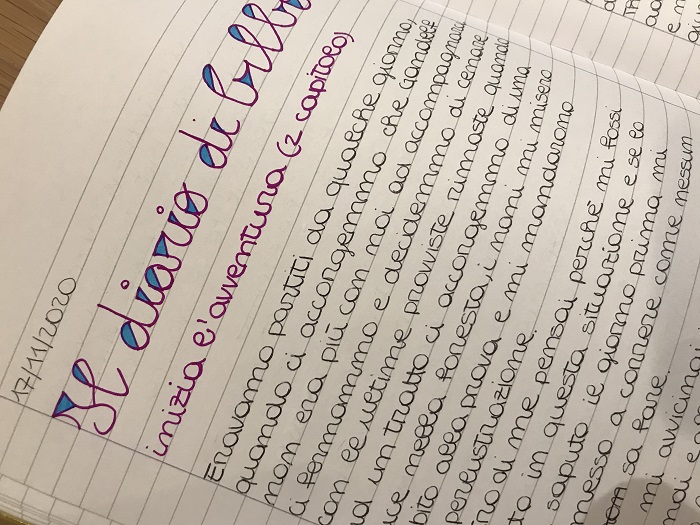 17/11/2020
Il diario di Bilbo
inizia l'avventura (2 capitolo)
Eravamo partiti da qualche giorno,
quando ci accorgemmo che Gandalf
non era più con noi ad accompagnarci
ci fermammo e decidemmo di cenare
con le ultime provviste rimaste quando
ad un tratto ci accorgemmo di una
luce nella foresta, i nani mi misero
alla prova e mi mandarono
perlustrazione.
di me pensai perché mi fossi
in questa situazione e se lo
saputo il giorno prima mi
messo a correre come nessun
sa fare.
mi avvicinai